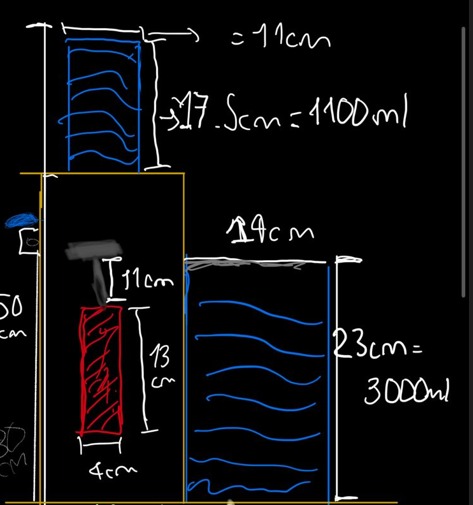 = 11cm
17.5cm = 1100ml
14cm
11cm
50
cm
13
cm
23cm =
3000ml
30
cm
4cm